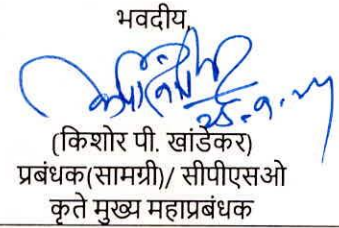 भवदीय,
25.9.24
(किशोर पी. खांडेकर)
प्रबंधक(सामग्री)/ सीपीएसओ
कृते मुख्य महाप्रबंधक